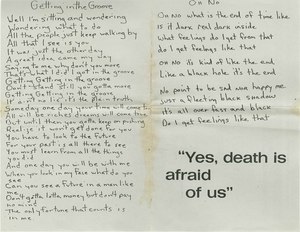 Getting in the Groove
Well I'm sitting and wondering
wondering what to do
All the people just keep walking by
All that I see is you
It was just the other day
A great idea came my way
Say to me why don't you more
That's what I did I got in the groove
Getting Getting in the groove
Don't stand still you gotta move
Getting Getting in the groove
It ain't no lie it's the plain truth
Some day one day your time will come
All will be riches dreams will come true
But until then you gotta keep on
Realize it won't get done for you
You have to look to the Future
For your past is all there to see
You must learn from all the things
you did
And one day you will be with me
When you look in my face what do you
see
Can you see a Future in a man like
me
Don't gotta lotta money but don't pay
no mind
The only fortune that counts is
in me
Oh No
Oh No what is the end of time like
Is it dark real dark inside
What feelings do I get from that
do I get feelings like that
Oh no it's kind of like the end
Like a black hole it's the end
No point to be sad now happy me
just a floating black shadow
it's all over fast and black
Do I get feelings like that
"Yes, death is
afraid
of us"